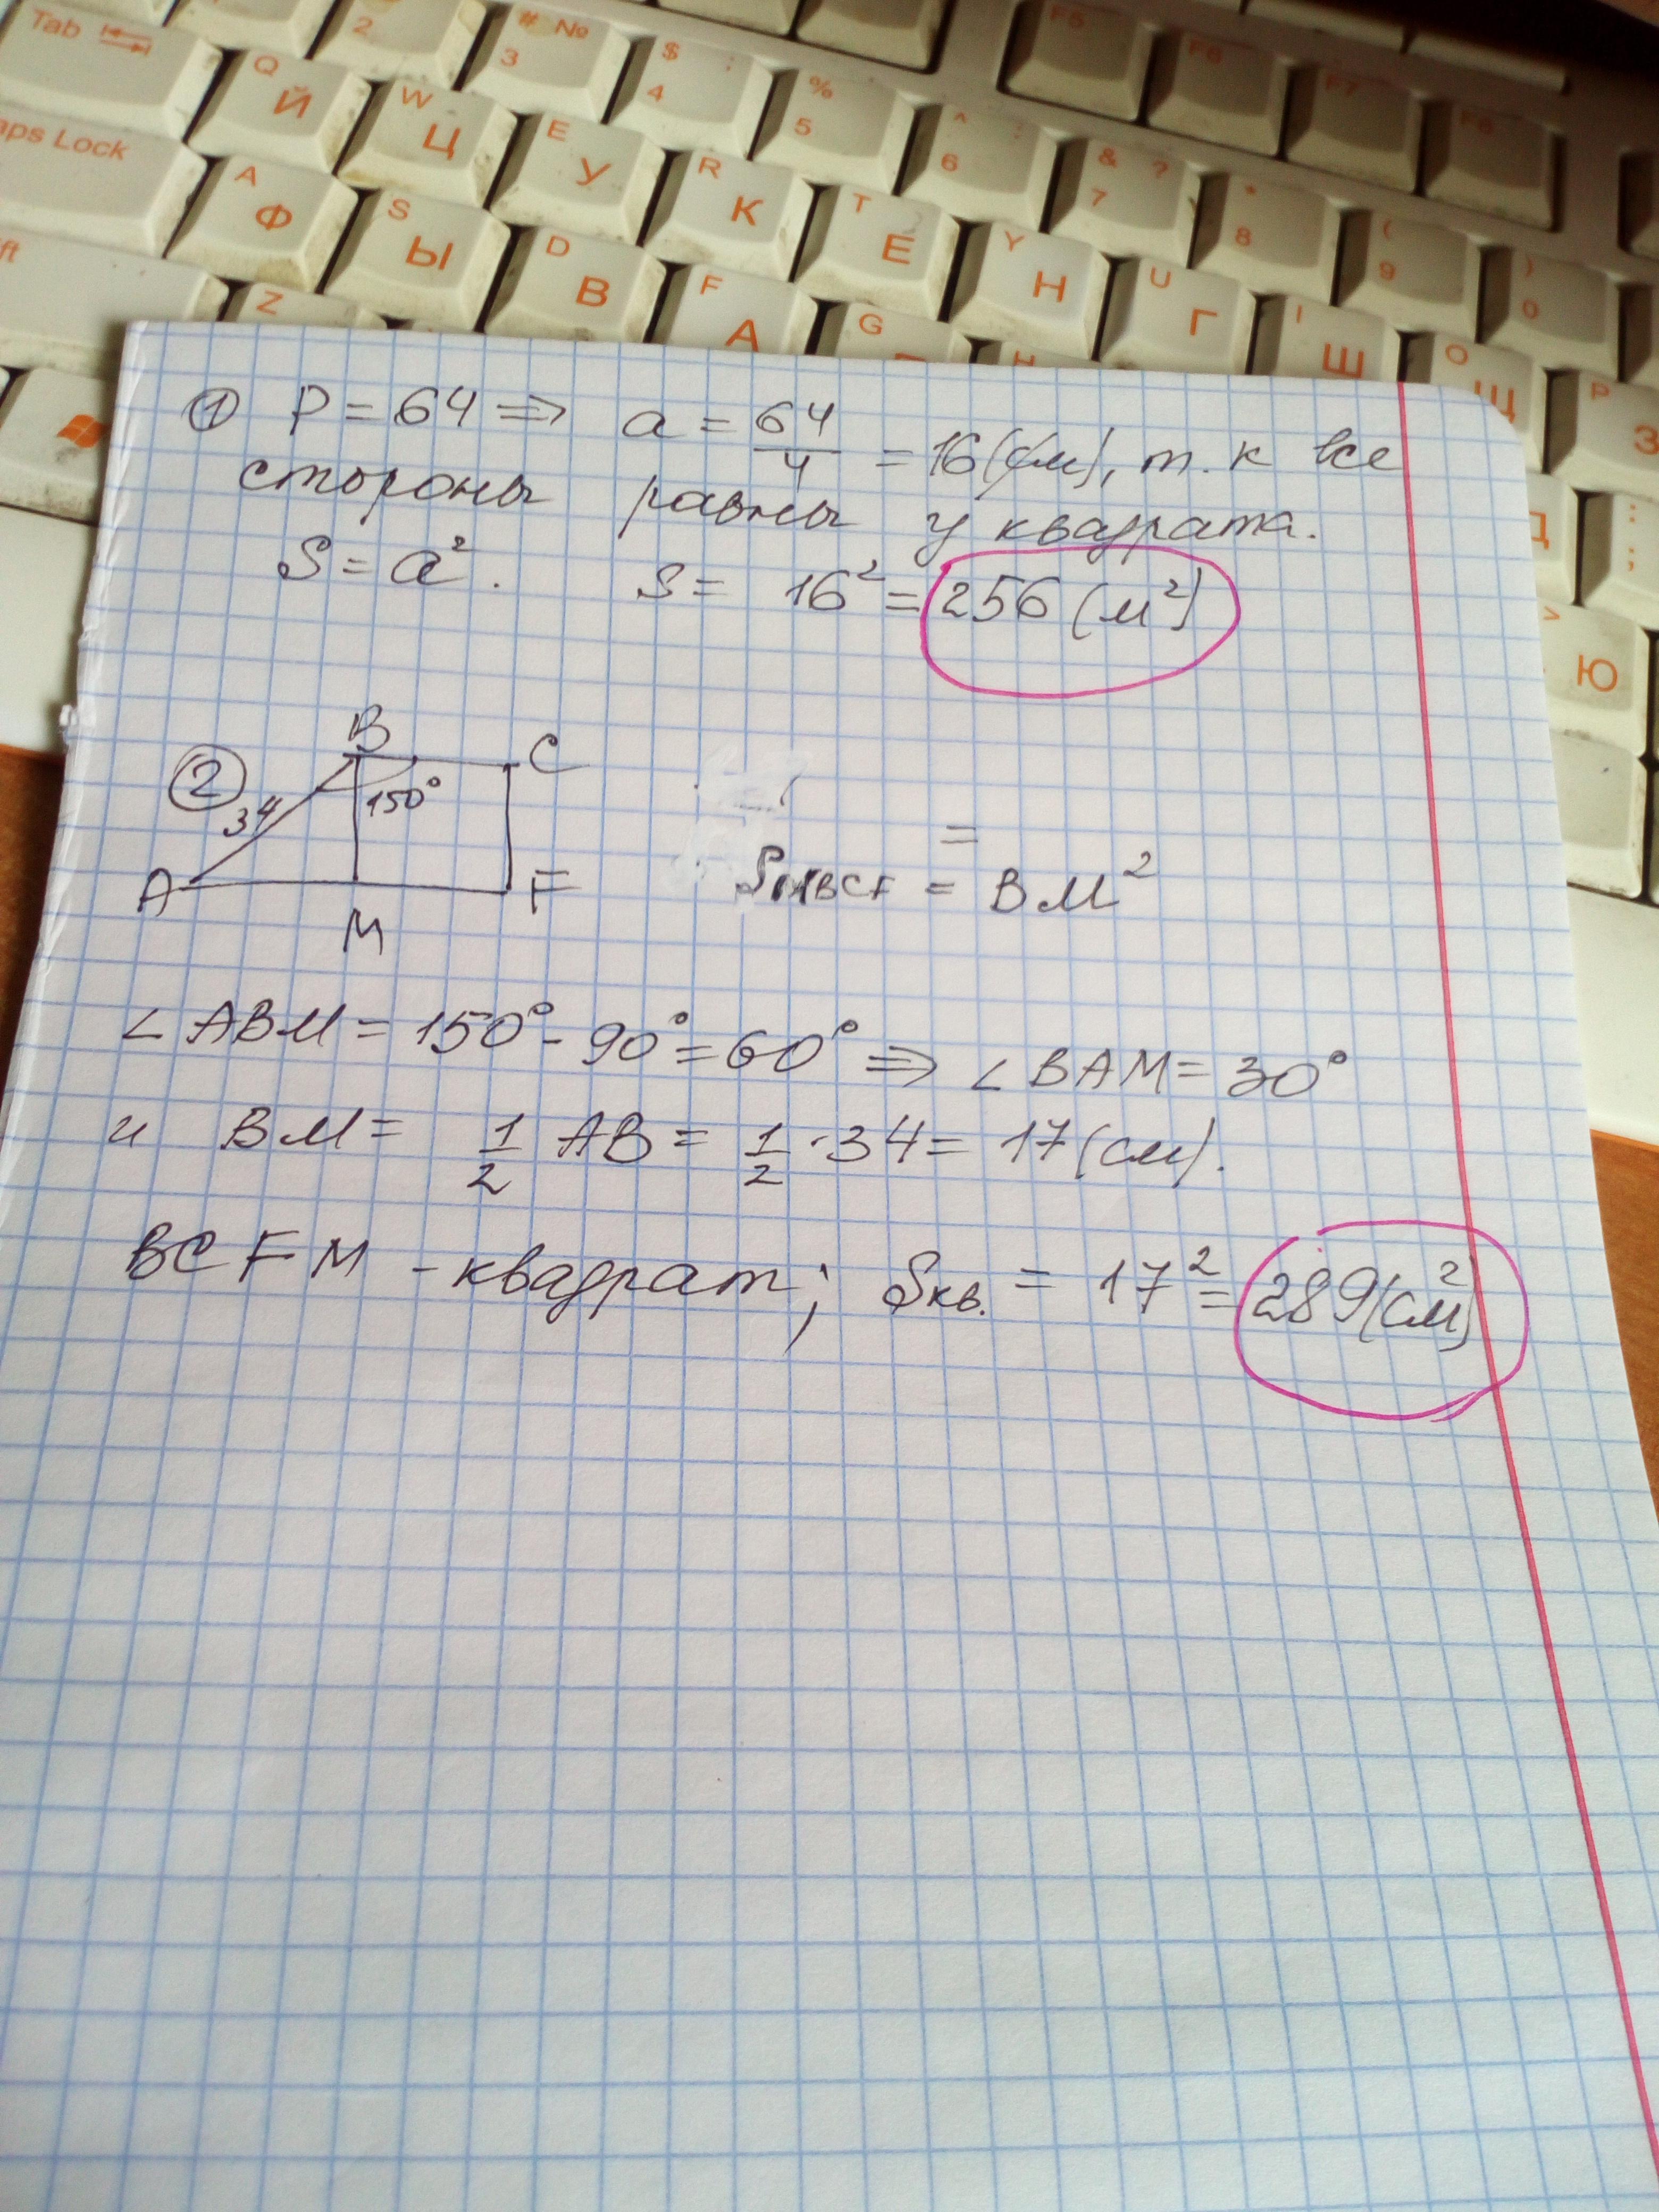 Tab 2 # № 3 $ ; 4 % 5 ^ : 6 & ? 7 * 8 ( 9 ) 0 F5 F6 F7 F8
Q Й W Ц E У R К T Е Y Н U Г I Ш O Щ P З
Caps Lock A Ф S Ы D В F А G H Д : ;
Z > Ю
① P = 64 => a = 64/4 = 16 (м), т.к все
стороны равны у квадрата.
S = a². S = 16² = 256 (м²)
②
B C
34 150°
A M F
=
SMBCF = BM²
∠ABM = 150° - 90° = 60° => ∠BAM = 30°
и BM = 1/2 AB = 1/2 · 34 = 17 (см).
BCFM - квадрат; Sкв. = 17² = 289 (см²)